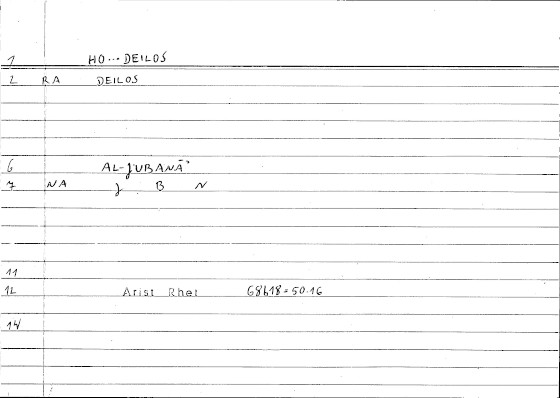 1 HO...DEILOS
2 RA DEILOS
6 AL-JUBANĀ'
7 NA J B N
11
12 Arist Rhet 68b18=50.16
14